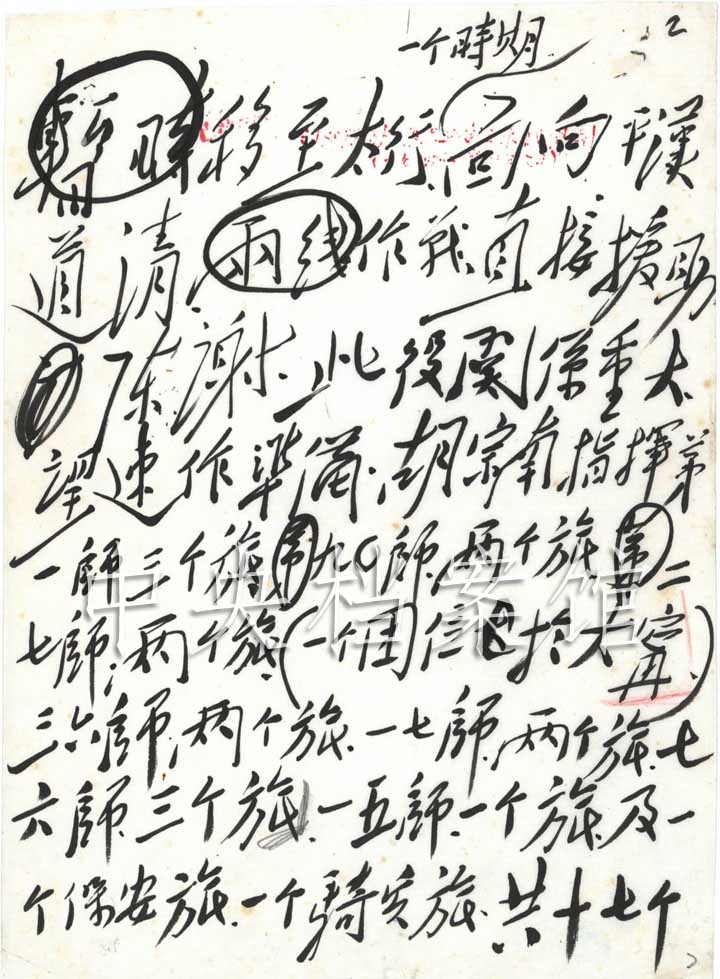 2
一个時期
暫時移至太行,面向平漢
道清兩线作战,直接援助
陈謝。此役関係重大,
望速作準备。胡宗南指揮第
一師三个旅、第九〇師两个旅、第二
七師两个旅(一个团位於大寧)
三六師两个旅、一七師两个旅、七
六師三个旅、一五師一个旅及一
个保安旅、一个騎兵旅,共十七个
中央档案馆